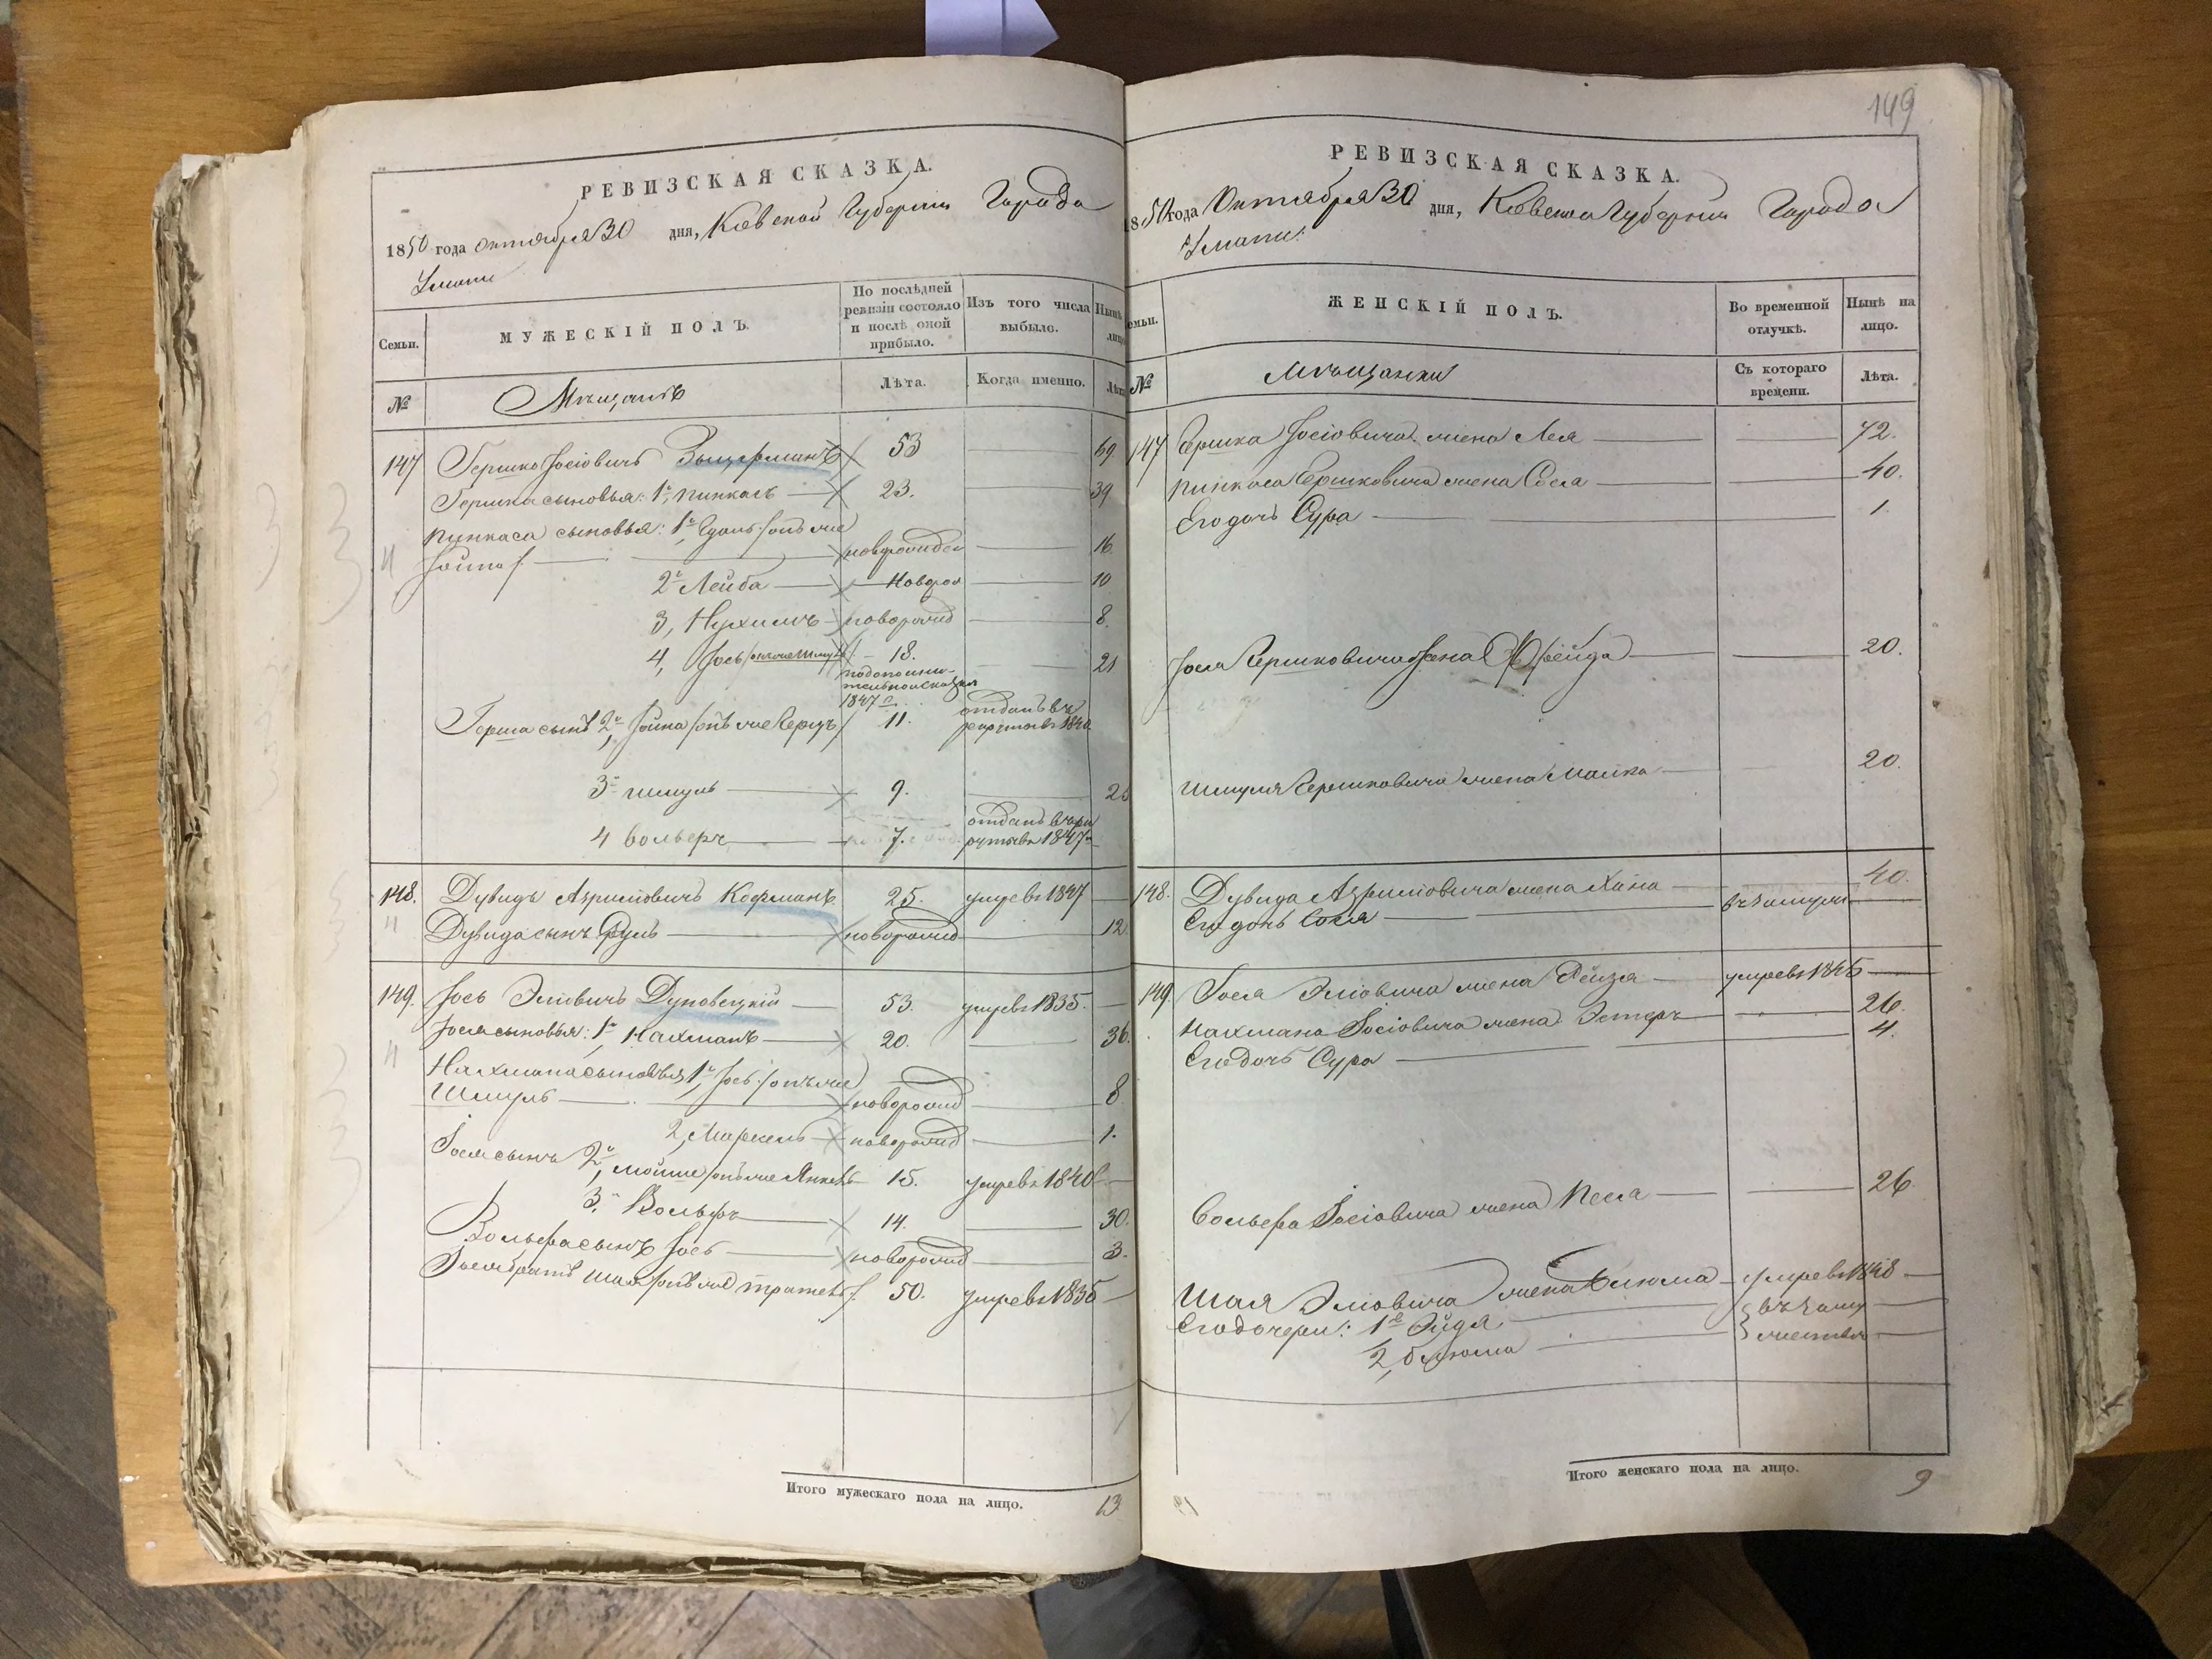 РЕВИЗСКАЯ СКАЗКА.
1850 года октября 30 дня, Киевской Губернии Города
Умани
Семьи.
МУЖЕСКІЙ ПОЛЪ.
По послѣдней ревизіи состояло и послѣ оной прибыло.
Изъ того числа выбыло.
Нынѣ лицо
№
Мѣщанъ
Лѣта.
Когда именно.
Лѣта
147 Гершко Іосіовичъ 53 69
Гершка сыновья: 1й, Пинкасъ 23. 39
Пинкаса сыновья: 1й
новорожден 16
2й Лейба Новрож 10
3, Нухимъ новорожд 8.
4, Іось 18. 21
1847
Герша сынъ 2й, 11. отданъ въ рекруты въ
3й Шмуль 9.
4 Вольфъ 7. отданъ въ рекруты въ 1847
148. Дувидъ Азриліовичъ Кофманъ 25. умре въ 1847
Дувида сынъ Сруль новорожд 12
149. Іось Эліовичъ Дуновецкій 53. умре въ 1835.
Іося сыновья: 1й, Нахманъ 20. 36.
Нахмана сыновья 1й, Іось (онъ же
Шмуль новорожд 8
2, новорожд 1.
Іося сынъ 2й, Мойше (онъ же Янкель 15. умре въ 1840
3й Вольфъ 14. 30.
Вольфа сынъ Іось новорожд 3.
Іося братъ Шая (онъ же 50. умре въ 1835
Итого мужескаго пола на лицо. 13
149
РЕВИЗСКАЯ СКАЗКА.
1850 года Октября 30 дня, Киевской Губернии Города
Умани.
Семьи.
ЖЕНСКІЙ ПОЛЪ.
Во временной отлучкѣ.
Нынѣ на лицо.
№
Мѣщанки
Съ котораго времени.
Лѣта.
147 Гершка Іосіовича жена Лея 72.
Пинкаса Гершковича жена Сося 40.
Его дочь Сура 1.
Іося Гершковича жена Фрейда 20.
Шмуля Гершковича жена Малка 20.
148. Дувида Азриліовича жена Хана 40.
Его дочь въ замуж
149. Іося Эліовича жена Рейзя умре въ 1845
Нахмана Іосіовича жена Эстеръ 26.
Его дочь Сура 4.
Вольфа Іосіовича жена Песя 26
Шая Эліовича жена умре въ 1848
Его дочери: 1я въ заму
2, Блюма жества
Итого женскаго пола на лицо. 9